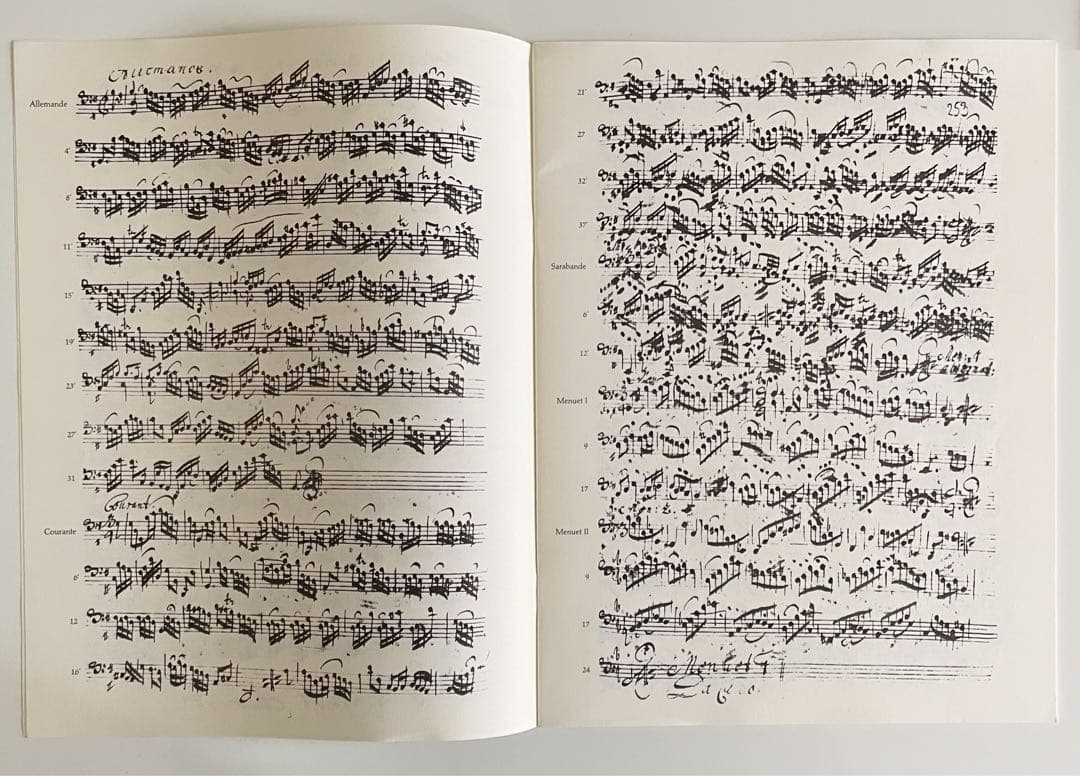 Allemande
4'
8'
11'
15'
19'
23'
27'
31
Courant
Courante
6'
12
16'
21'
253
27
32'
37'
Sarabande
6'
12'
Menuet I
9
17
Menuet II
9
17
24